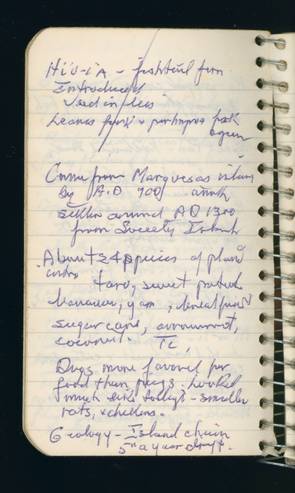 Hi'u-i'A - fishtail fern
Introduced
Used in leis
Leaves
Came from Marquesas
By A.D 900
settlers around AD 1300
from Society Islands
About 24 species of plants
taro, sweet potato
bananas, yam, breadfruit
sugar cane, arrowroot,
coconut. Ti,
Dogs more favored for
food than pigs. looked
much like today's - smaller
rats, chickens.
Geology - Island chain
5" a year drift.